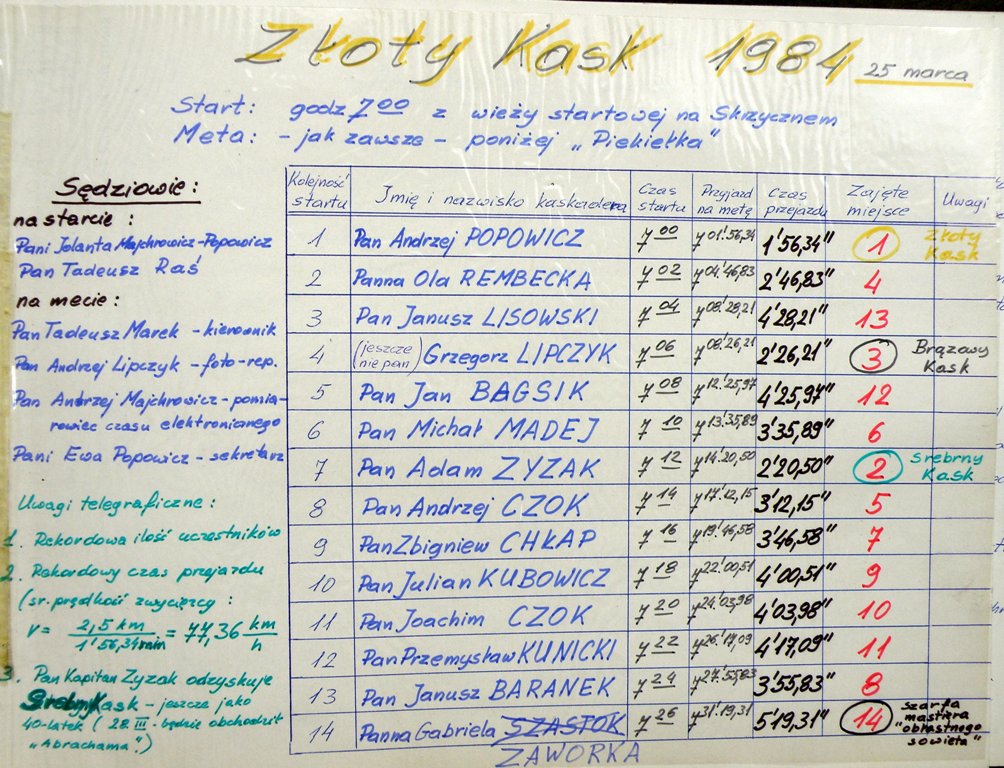 Złoty Kask 1984 25 marca
Start: godz 7 00 z wieży startowej na Skrzycznem
Meta: - jak zawsze - poniżej „Piekiełka"
Sędziowie:
na starcie:
Pani Jolanta Majchrowicz-Popowicz
Pan Tadeusz Raś
na mecie:
Pan Tadeusz Marek - kierownik
Pan Andrzej Lipczyk - foto-rep.
Pan Andrzej Majchrowicz - pomia-
rowiec czasu elektronicznego
Pani Ewa Popowicz - sekretarz
Uwagi telegraficzne:
1. Rekordowa ilość uczestników
2. Rekordowy czas przejazdu
(śr. prędkość zwycięzcy:
V = 2,5 km / 1'56,34 min = 77,36 km/h
3. Pan Kapitan Zyzak odzyskuje
Srebrny Kask - jeszcze jako
40-latek (28 III będzie obchodził
„Abrachama")
Kolejność startu Imię i nazwisko kaskadera Czas startu Przyjazd na metę Czas przejazdu Zajęte miejsce Uwagi
1 Pan Andrzej POPOWICZ 7 00 7 01'56,34 1'56,34" 1 Złoty Kask
2 Panna Ola REMBECKA 7 02 7 04'46,83 2'46,83" 4
3 Pan Janusz LISOWSKI 7 04 7 08'28,21 4'28,21" 13
4 (jeszcze nie pan) Grzegorz LIPCZYK 7 06 7 08'26,21 2'26,21" 3 Brązowy Kask
5 Pan Jan BAGSIK 7 08 7 12'25,97 4'25,97" 12
6 Pan Michał MADEJ 7 10 7 13'35,89 3'35,89" 6
7 Pan Adam ZYZAK 7 12 7 14'20,50 2'20,50" 2 Srebrny Kask
8 Pan Andrzej CZOK 7 14 7 17'12,15 3'12,15" 5
9 Pan Zbigniew CHŁAP 7 16 7 19'46,58 3'46,58" 7
10 Pan Julian KUBOWICZ 7 18 7 22'00,51 4'00,51" 9
11 Pan Joachim CZOK 7 20 7 24'03,98 4'03,98" 10
12 Pan Przemysław KUNICKI 7 22 7 26'17,09 4'17,09" 11
13 Pan Janusz BARANEK 7 24 7 27'55,83 3'55,83" 8
14 Panna Gabriela SZASTOK 7 26 7 31'19,31 5'19,31" 14 Szarfa mastiera "obłastnego sowieta"
ZAWORKA